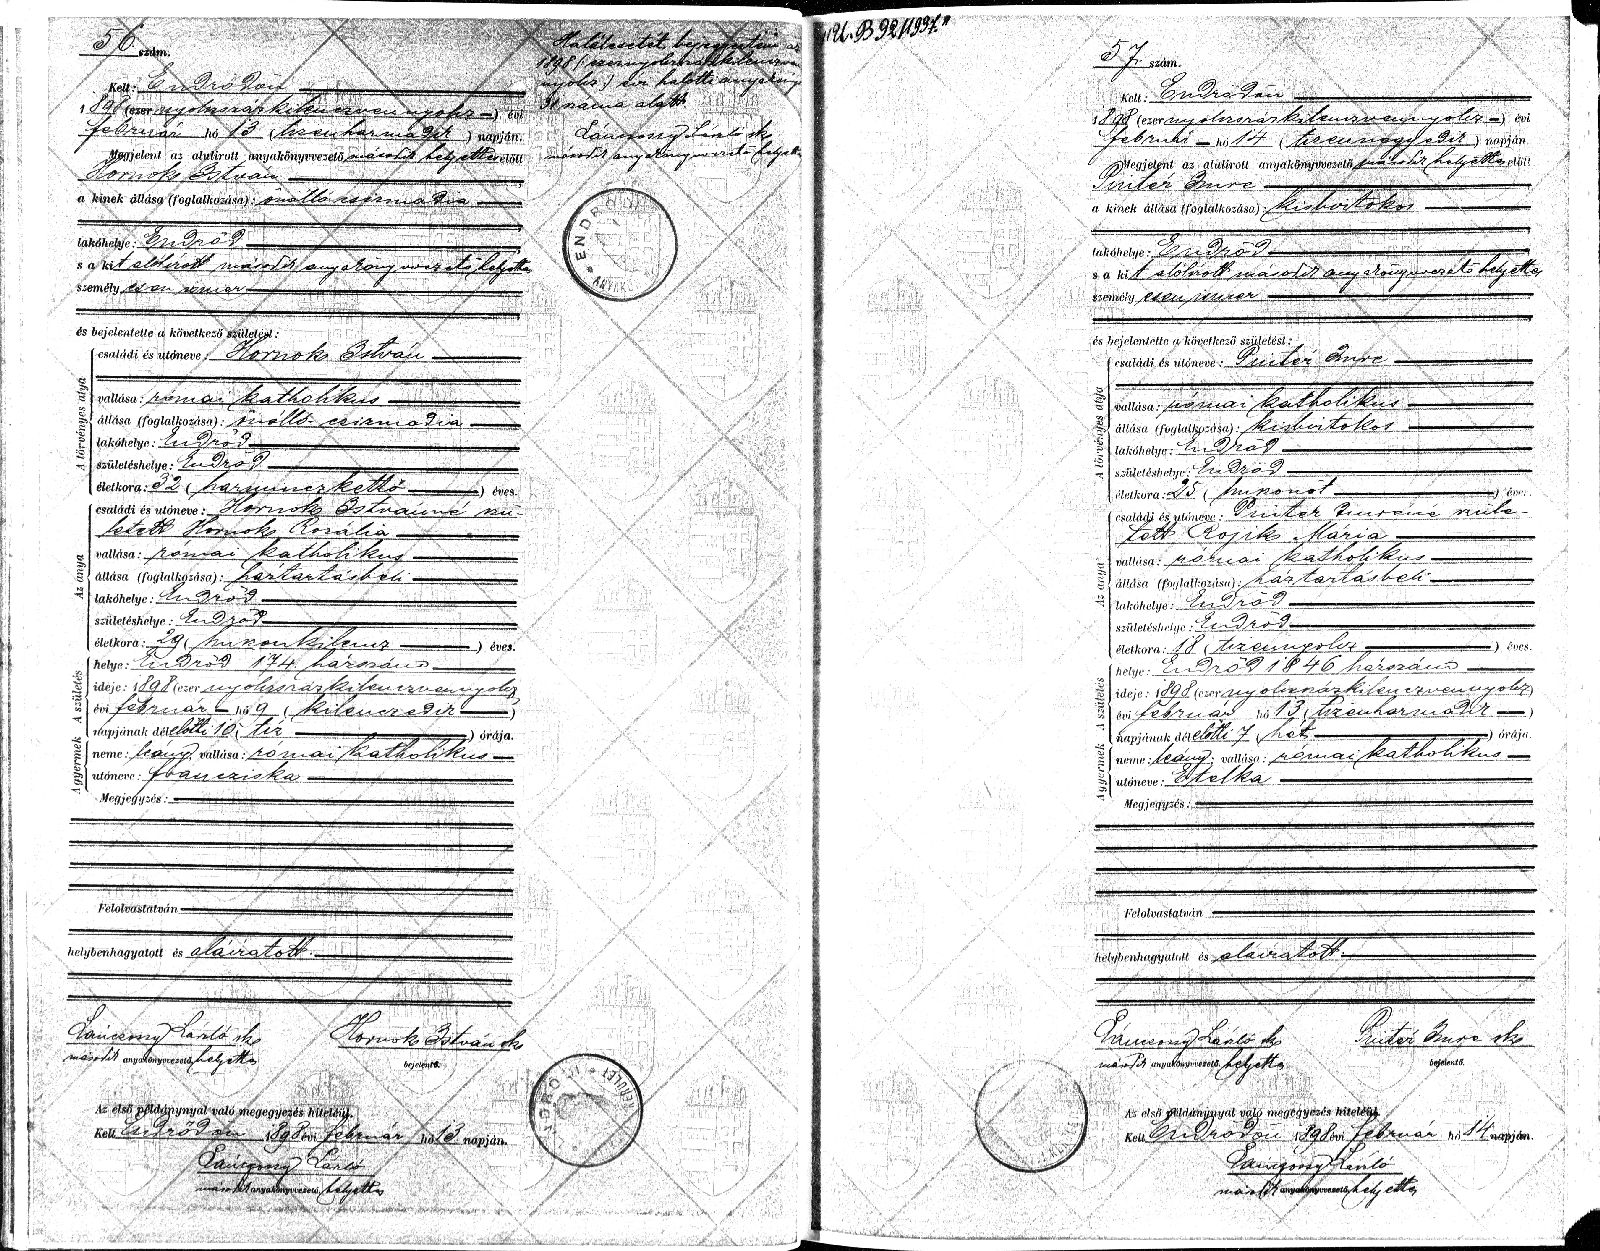 56 szám.
Kelt: Endrődön
1898 (ezer nyolcszázkilenczvennyolcz) évi
február hó 13 (tizenharmadik) napján.
Megjelent az alulirott anyakönyvvezető második helyettes előtt
Hornok István
a kinek állása (foglalkozása): önálló csizmadia
lakóhelye: Endrőd
s a kit alólirott második anyakönyvvezető helyettes
személyesen ismer
és bejelentette a következő születést:
A törvényes atya
családi és utóneve: Hornok István
vallása: római katholikus
állása (foglalkozása): önálló csizmadia
lakóhelye: Endrőd
születéshelye: Endrőd
életkora: 32 (harminczkettő) éves.
Az anya
családi és utóneve: Hornok Istvánné szü-
letett Hornok Rozália
vallása: római katholikus
állása (foglalkozása): háztartásbeli
lakóhelye: Endrőd
születéshelye: Endrőd
életkora: 29 (huszonkilencz) éves.
A születés
helye: Endrőd 174. házszám
ideje: 1898 (ezer nyolcszázkilenczvennyolcz)
évi február hó 9 (kilenczedik)
napjának délelőtti 10, tíz órája.
A gyermek
neme: leány, vallása: római katholikus
utóneve: Francziska
Megjegyzés:
Felolvastatván
helybenhagyatott és aláiratott.
Lánczony László sk. Hornok István sk
második anyakönyvvezető helyettes bejelentő.
Az első példánynyal való megegyezés hiteléül.
Kelt Endrődön 1898 évi február hó 13 napján.
Lánczony László
második anyakönyvvezető helyettes
Halálesetét bejegyeztem az
1898 (ezernyolcszázkilenczven
nyolcz) évi halotti anyakönyv
száma alatt.
Lánczony László sk
második anyakönyvvezető helyettes
ENDRŐDI
ENDRŐDI KERÜLET
B 92/1937.
57. szám.
Kelt: Endrődön
1898 (ezer nyolcszázkilenczvennyolcz) évi
február hó 14 (tizennegyedik) napján
Megjelent az alulirott anyakönyvvezető második helyettes előtt
Pintér Imre
a kinek állása (foglalkozása): kisbirtokos
lakóhelye: Endrőd
s a kit alólirott második anyakönyvvezető helyettes
személyesen ismer
és bejelentette a következő születést:
A törvényes atya
családi és utóneve: Pintér Imre
vallása: római katholikus
állása (foglalkozása): kisbirtokos
lakóhelye: Endrőd
születéshelye: Endrőd
életkora: 25 (huszonöt) éves.
Az anya
családi és utóneve: Pintér Imréné szüle-
tett Rojik Mária
vallása: római katholikus
állása (foglalkozása): háztartásbeli
lakóhelye: Endrőd
születéshelye: Endrőd
életkora: 18 (tizennyolcz) éves.
A születés
helye: Endrőd 1846 házszám
ideje: 1898 (ezer nyolcszázkilenczvennyolcz)
évi február hó 13 (tizenharmadik)
napjának délelőtti 7 (hét) órája.
A gyermek
neme: leány; vallása: római katholikus
utóneve: Etelka
Megjegyzés:
Felolvastatván
helybenhagyatott és aláiratott.
Lánczony László sk Pintér Imre sk
második anyakönyvvezető helyettes bejelentő.
Az első példánynyal való megegyezés hiteléül.
Kelt Endrődön 1898 évi február hó 14 napján.
Lánczony László
második anyakönyvvezető helyettes